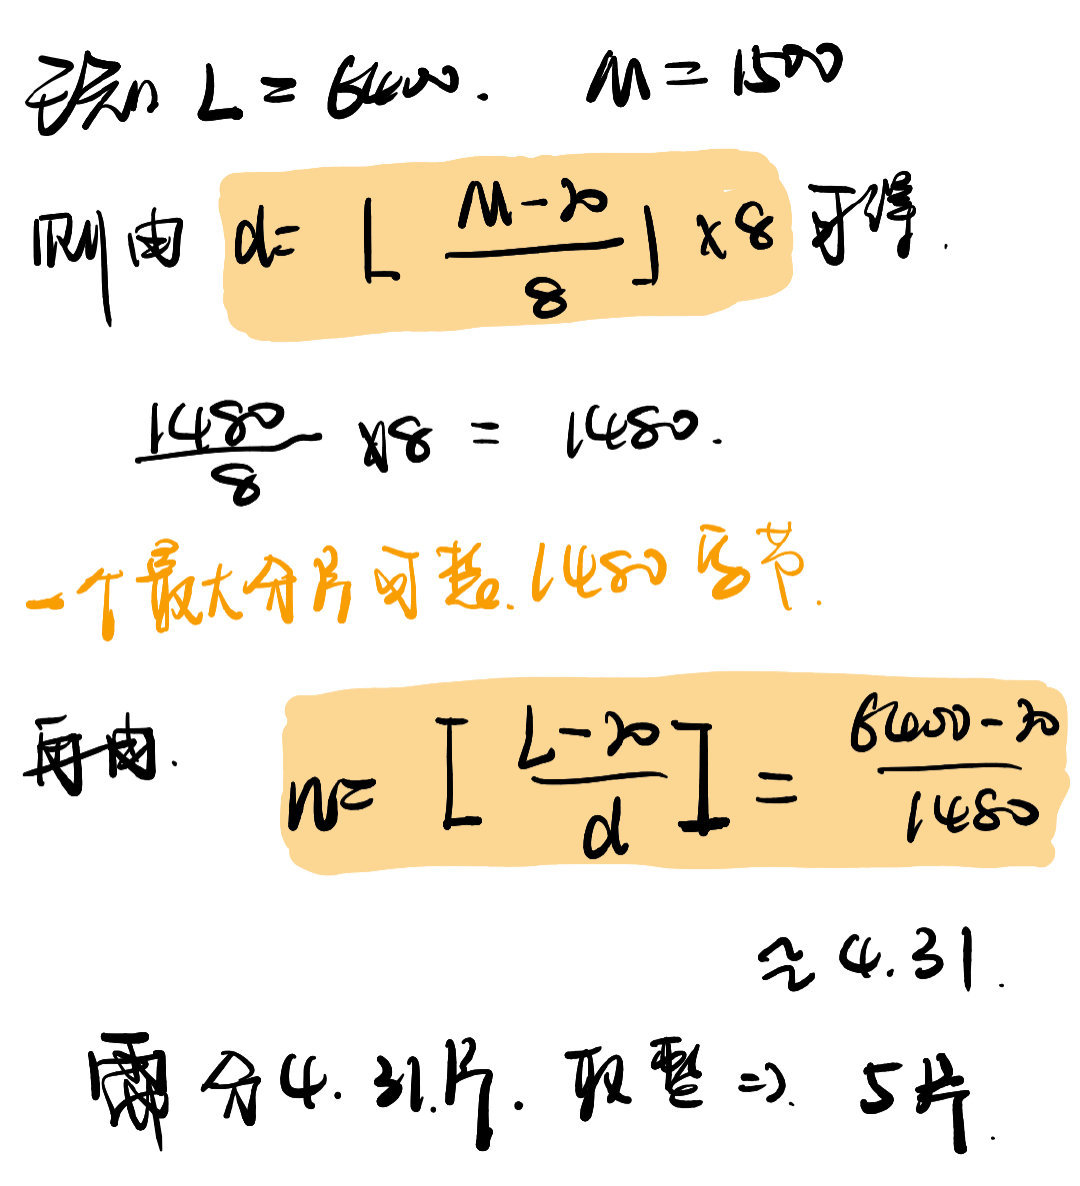 已知 L = 6400. M = 1500
则由 d = ⌊ (M-20)/8 ⌋ ×8 可得.
1480/8 ×8 = 1480.
一个最大分片可装 1480 字节.
再由. n = [ (L-20)/d ] = (6400-20)/1480
≈ 4.31.
需分 4.31片. 取整 => 5片.